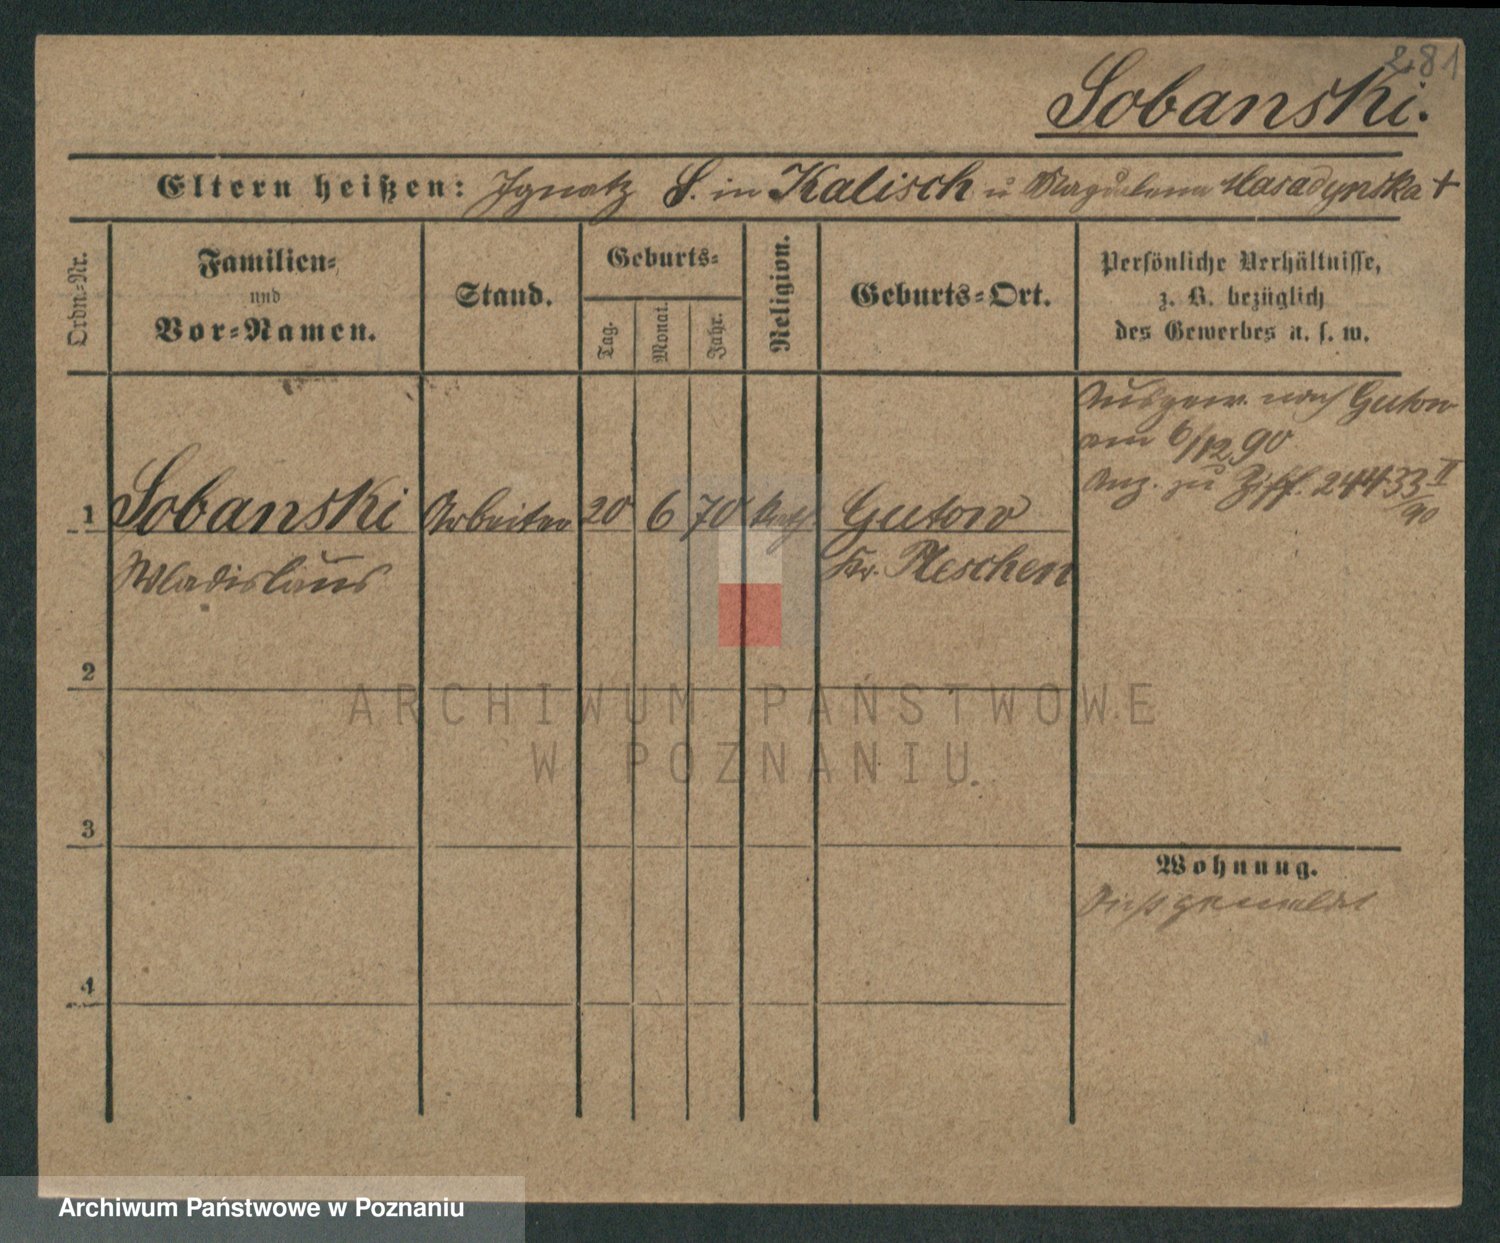 281
Sobanski.
Eltern heißen: Ignatz S. in Kalisch u Magdalena Masadynska +
Ordn.-Nr.
Familien-
und
Vor-Namen.
Stand.
Geburts-
Tag.
Monat.
Jahr.
Religion.
Geburts-Ort.
Persönliche Verhältnisse,
z. B. bezüglich
des Gewerbes u. s. w.
Ausgew. nach Gutow
am 6/12 90
Anz. zu Ziff. 24433 II/90
1 Sobanski Arbeiter 20 6 70 kath. Gutow
Wladislaus Kr. Pleschen
2
3
4
Wohnung.
ARCHIWUM PAŃSTWOWE
W POZNANIU
Archiwum Państwowe w Poznaniu